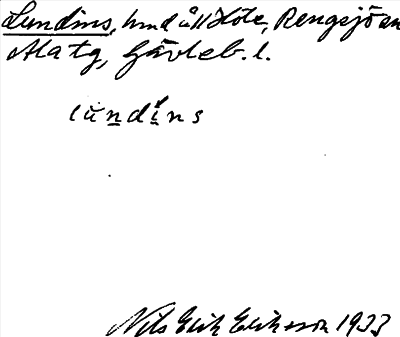 Lundins, hmd u. Höle, Rengsjö sn
Ala tg, Gävleb. l.
lundins
Nils Erik Eriksson 1933